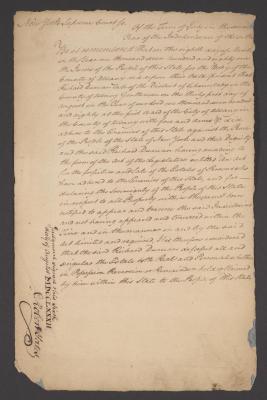 New York Supreme Court ss. Of the Term of July in the seventh
Year of the Independence of the
Be it remembered That on the eighth day of
in the Year one thousand seven hundred and eighty
the Jurors of the People of this State for the Body of the
County of Albany did upon their Oath present That
Richard Duncan late of the District of Schenectady in the
County of Albany on the day of
August in the Year of our Lord one thousand seven hundred
and eighty at the City of Albany in
the County of Albany with force and Arms &c did
adhere to the Enemies of this State against the Peace
of the People of the State of New York and their Dignity
and the said Richard Duncan having according to
the form of the Act of the Legislature entitled An Act
for the forfeiture and Sale of the Estates of Persons who
have adhered to the Enemies of this State and for
declaring the Sovereignty of the People of this State
in respect to all Property within the same been
notified to appear and traverse the said Indictment
and not having appeared and traversed within the
Time and in the manner in and by the said
Act limited and required It is therefore considered
that the said Richard Duncan do forfeit all and
singular the Estate both Real and Personal whether
in Possession Reversion or Remainder held or claimed
by him within this State to the People of this State
Judgment
MDCCLXXXIII